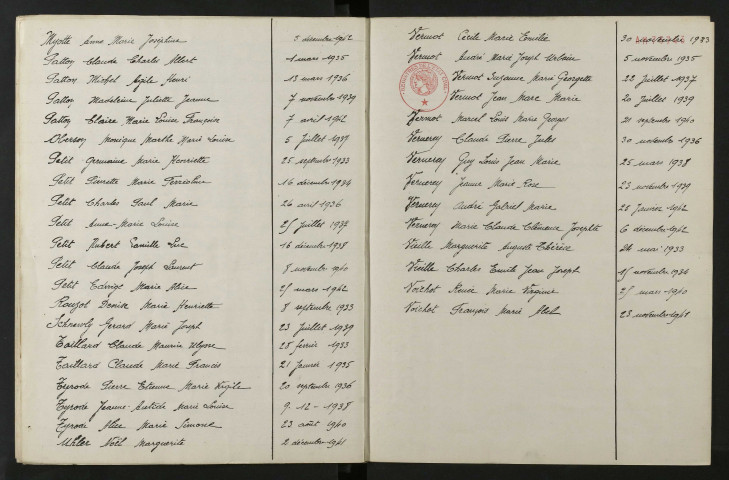 Myotte Anne Marie Joséphine 2 décembre 1942
Patton Claude Charles Albert 1 mars 1935
Patton Michel Henri 13 mars 1936
Patton Madeleine Juliette Jeanne 7 novembre 1939
Patton Claire Marie Louise Françoise 7 avril 1942
Oberson Monique Marthe Marie Louise 5 juillet 1937
Petit Germaine Marie Henriette 25 septembre 1933
Petit Pierrette Marie 16 décembre 1934
Petit Charles Paul Marie 26 avril 1936
Petit Anne-Marie Louise 25 juillet 1937
Petit Hubert Camille Luc 16 décembre 1938
Petit Claude Joseph Laurent 8 novembre 1940
Petit Edwige Marie Alice 25 mars 1942
Rouzot Denise Marie Henriette 8 septembre 1933
Gérard Marie Joseph 23 juillet 1939
Taillard Claude Maurice Ulysse 28 février 1933
Taillard Claude Marie Francis 21 janvier 1935
Tyrode Pierre Etienne Marie Virgile 20 septembre 1936
Tyrode Jeanne- Marie Louise 9-12-1938
Tyrode Alice Marie Simone 23 août 1940
Uhler Noël Marguerite 2 décembre 1941
Vermot Cécile Marie Emilie 30 1933
Vermot André Marie Joseph Urbain 5 novembre 1935
Vermot Suzanne Marie Georgette 22 juillet 1937
Vermot Jean Marc Marie 20 juillet 1939
Vermot Marcel Louis Marie Georges 21 septembre 1940
Vernerey Claude Pierre Jules 30 novembre 1936
Vernerey Guy Louis Jean Marie 25 mars 1938
Vernerey Jeanne Marie Rose 23 novembre 1939
Vernerey André Gabriel Marie 26 janvier 1942
Vernerey Marie Claude Clémence Josephte 6 décembre 1942
Vieille Marguerite Auguste Thérèse 24 mai 1933
Vieille Charles Emile Jean Joseph 15 novembre 1934
Voichot Renée Marie Virginie 25 mars 1940
Voichot François Marie Abel 23 novembre 1941